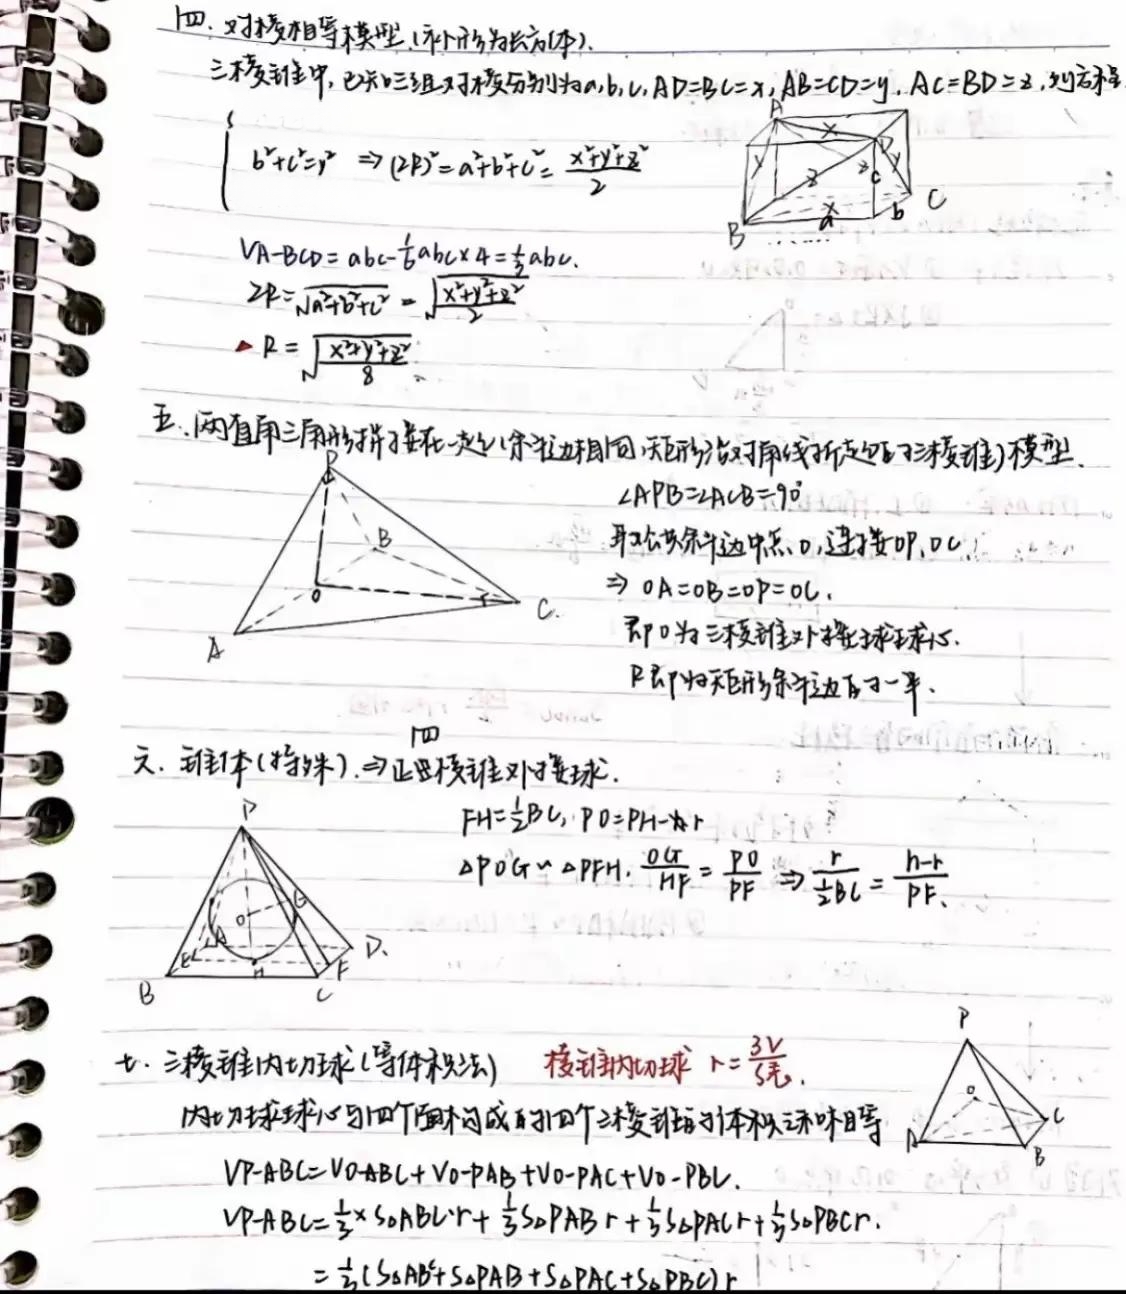 四. 对棱相等模型.(补形为长方体).
三棱锥中,已知三组对棱分别为a,b,c, AD=BC=x, AB=CD=y, AC=BD=z, 列方程
{ b²+c²=y² ⇒ (2R)²=a²+b²+c²= (x²+y²+z²)/2
VA-BCD = abc-1/6abc×4=1/3abc.
2R=√(a²+b²+c²) = √((x²+y²+z²)/2)
R=√((x²+y²+z²)/8)
A
x
D
y
z
z
c
y
C
B
x
a
b
五. 两直角三角形拼接在一起(斜边相同,矩形沿对角线折起的三棱锥)模型.
∠APB=∠ACB=90°
取公共斜边中点O,连接OP,OC
⇒ OA=OB=OP=OC.
即O为三棱锥外接球球心.
R即为矩形斜边的一半.
P
B
O
A
C.
六. 锥体(特殊).⇒正四棱锥外接球.
四
FH=1/2BC, PO=PH-r
△POG∽△PFH. OG/HF = PO/PF ⇒ r/(1/2BC) = (h-r)/PF.
P
G
O
A
E
D.
H
F
B
C
七. 三棱锥内切球(等体积法) 棱锥内切球 r=3V/S表.
内切球球心与四个面构成的四个三棱锥的体积之和相等
VP-ABC=VO-ABC+VO-PAB+VO-PAC+VO-PBC.
VP-ABC=1/3×S△ABC·r+1/3S△PAB r+1/3S△PAC r+1/3S△PBC r.
=1/3(S△ABC+S△PAB+S△PAC+S△PBC)r
P
O
C
A
B